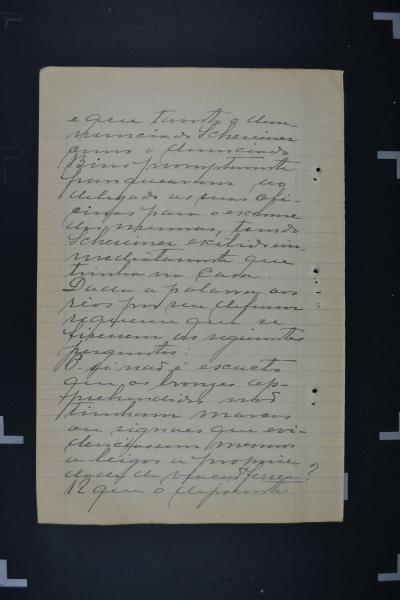 e que tanto o denun-
nunciado Scheriner
como o denunciado
Bins promptamente
franquearam ao
delegado as suas ofi-
cinas para o exame
das mesmas, tendo
Scheriner exibido im-
mediatamente que
tinha na casa.
Dada a palavra aos
réos por seu defensor
requereu que se
fizessem as seguintes
perguntas:
P. si não é exacto
que os bronzes ap-
prehendidos não
tinham marcas
ou signaes que evi-
denciassem mesmo
a leigos a proprie
dade da viação ferrea?
R que o depoente